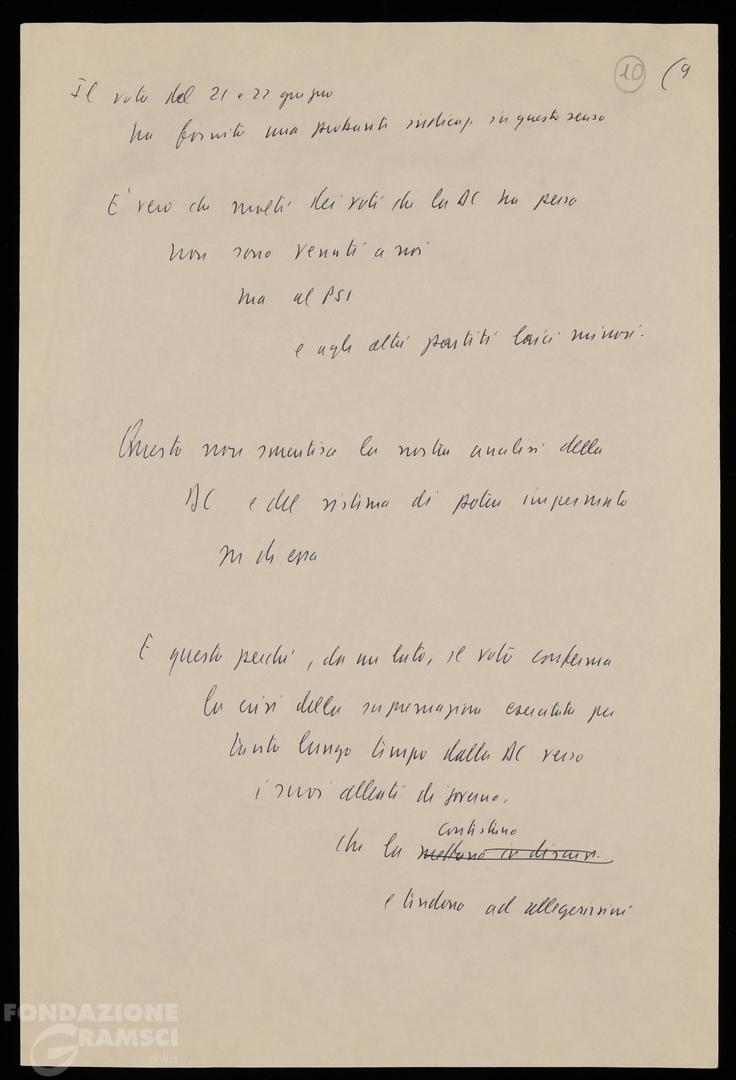 10 (9
Il voto del 21 e 22 giugno
ha fornito una probante indicaz. in questo senso
E' vero che molti dei voti che la DC ha perso
non sono venuti a noi
ma al PSI
e agli altri partiti laici minori.
Questo non smentisce la nostra analisi della
DC e del sistema di potere imperniato
su di essa
E questo perché, da un lato, il voto conferma
la crisi della supremazia esercitata per
tanto lungo tempo dalla DC verso
i suoi alleati di governo,
contestano
che la mettono in discuss.
e tendono ad alleggerirsi
FONDAZIONE
GRAMSCI
onlus